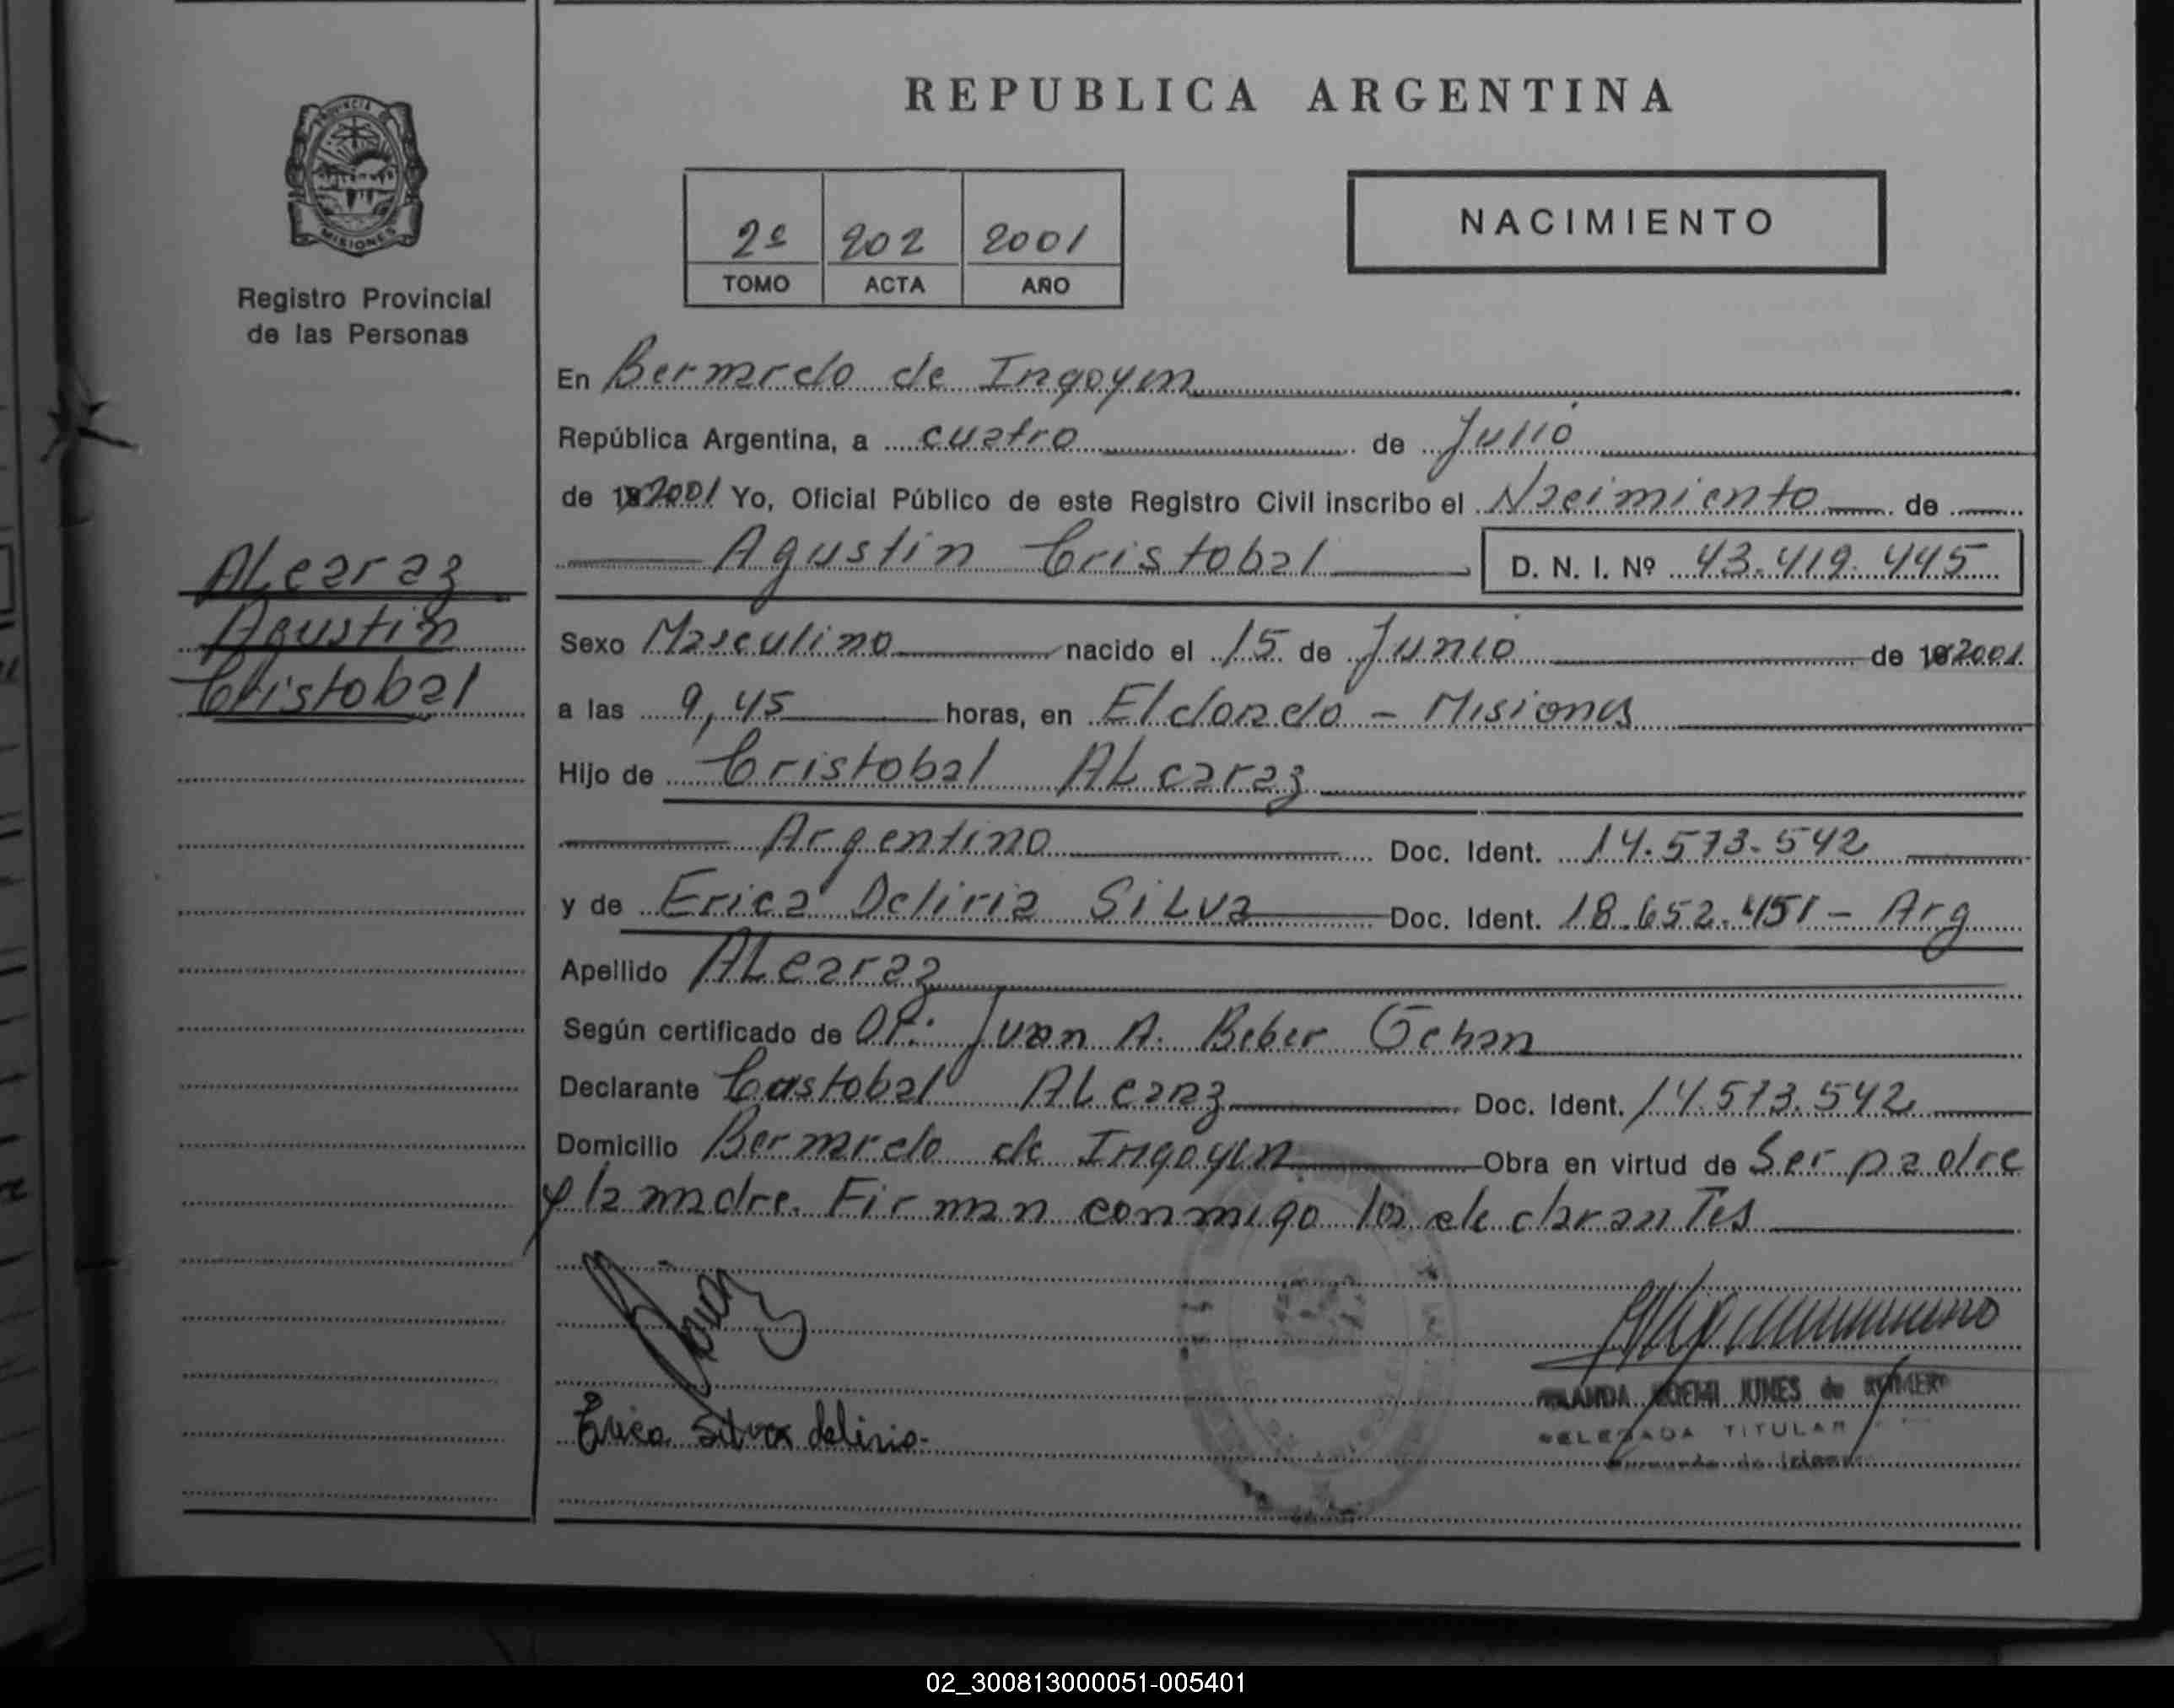 REPUBLICA ARGENTINA
PROVINCIA
MISIONES
Registro Provincial
de las Personas
2º 202 2001
TOMO ACTA AÑO
NACIMIENTO
En Bernardo de Irigoyen
República Argentina, a cuatro de Julio
de 2001 Yo, Oficial Público de este Registro Civil inscribo el Nacimiento de
Agustin Cristobal D. N. I. Nº 43.419.445
ALcaraz
Agustin
Cristobal
Sexo Masculino nacido el 15 de Junio de 2001
a las 9,45 horas, en Eldorado - Misiones
Hijo de Cristobal ALcaraz
Argentino Doc. Ident. 14.573.542
y de Erica Deliria SiLva Doc. Ident. 18.652.451 - Arg
Apellido ALcaraz
Según certificado de Dr: Juan A. Beber
Declarante Cristobal ALcaraz Doc. Ident. 14.573.542
Domicilio Bernardo de Irigoyen Obra en virtud de Ser padre
y la madre. Firman conmigo los declarantes
Erica Silva deliria-
NOEMI JUNES de
DELEGADA TITULAR
02_300813000051-005401